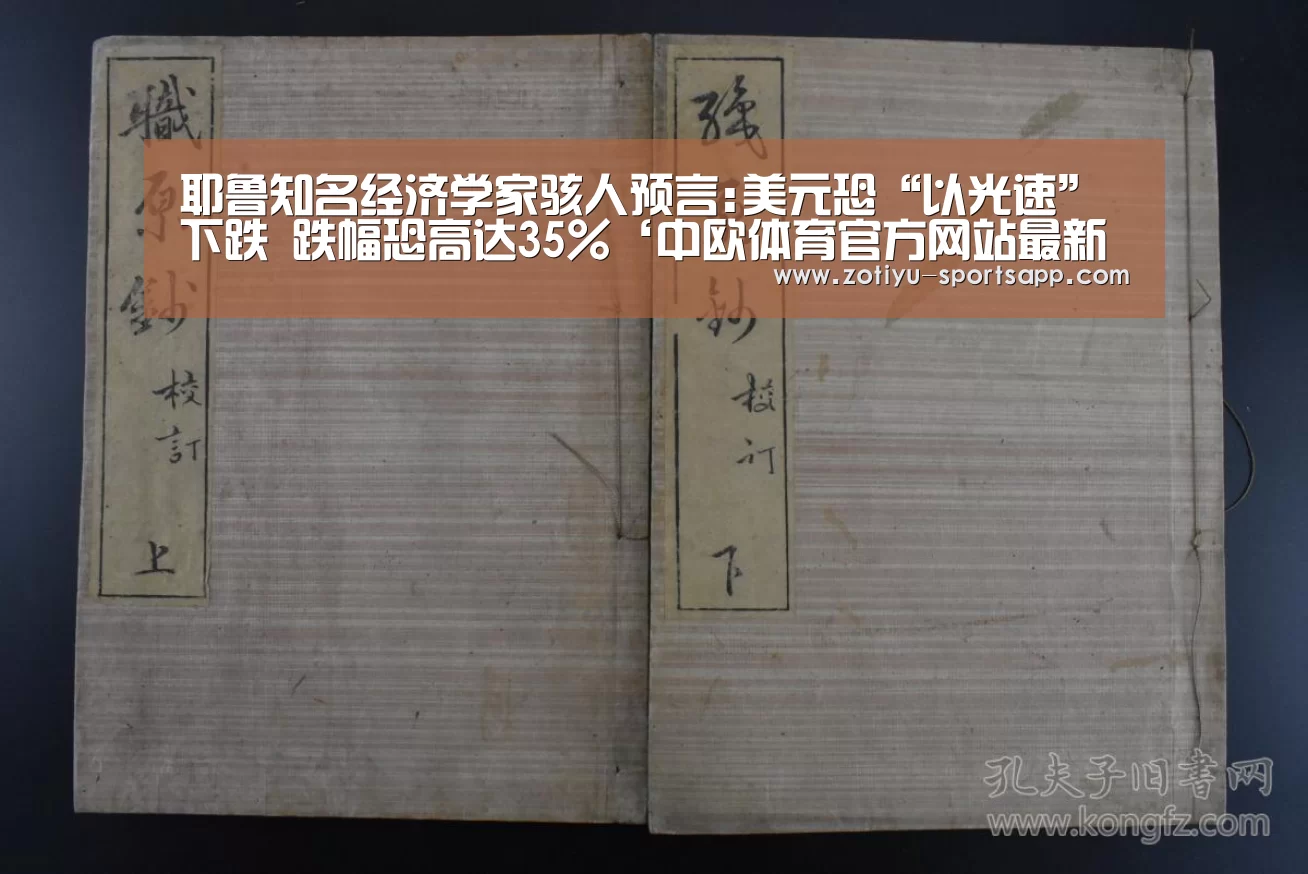 耶鲁知名经济学家骇人预言:美元恐“以光速”
下跌 跌幅恐高达35%‘中欧体育官方网站最新
www.zotiyu-sportsapp.com
職原鈔
校訂
上
鈔
校訂
下
孔夫子旧书网
www.kongfz.com